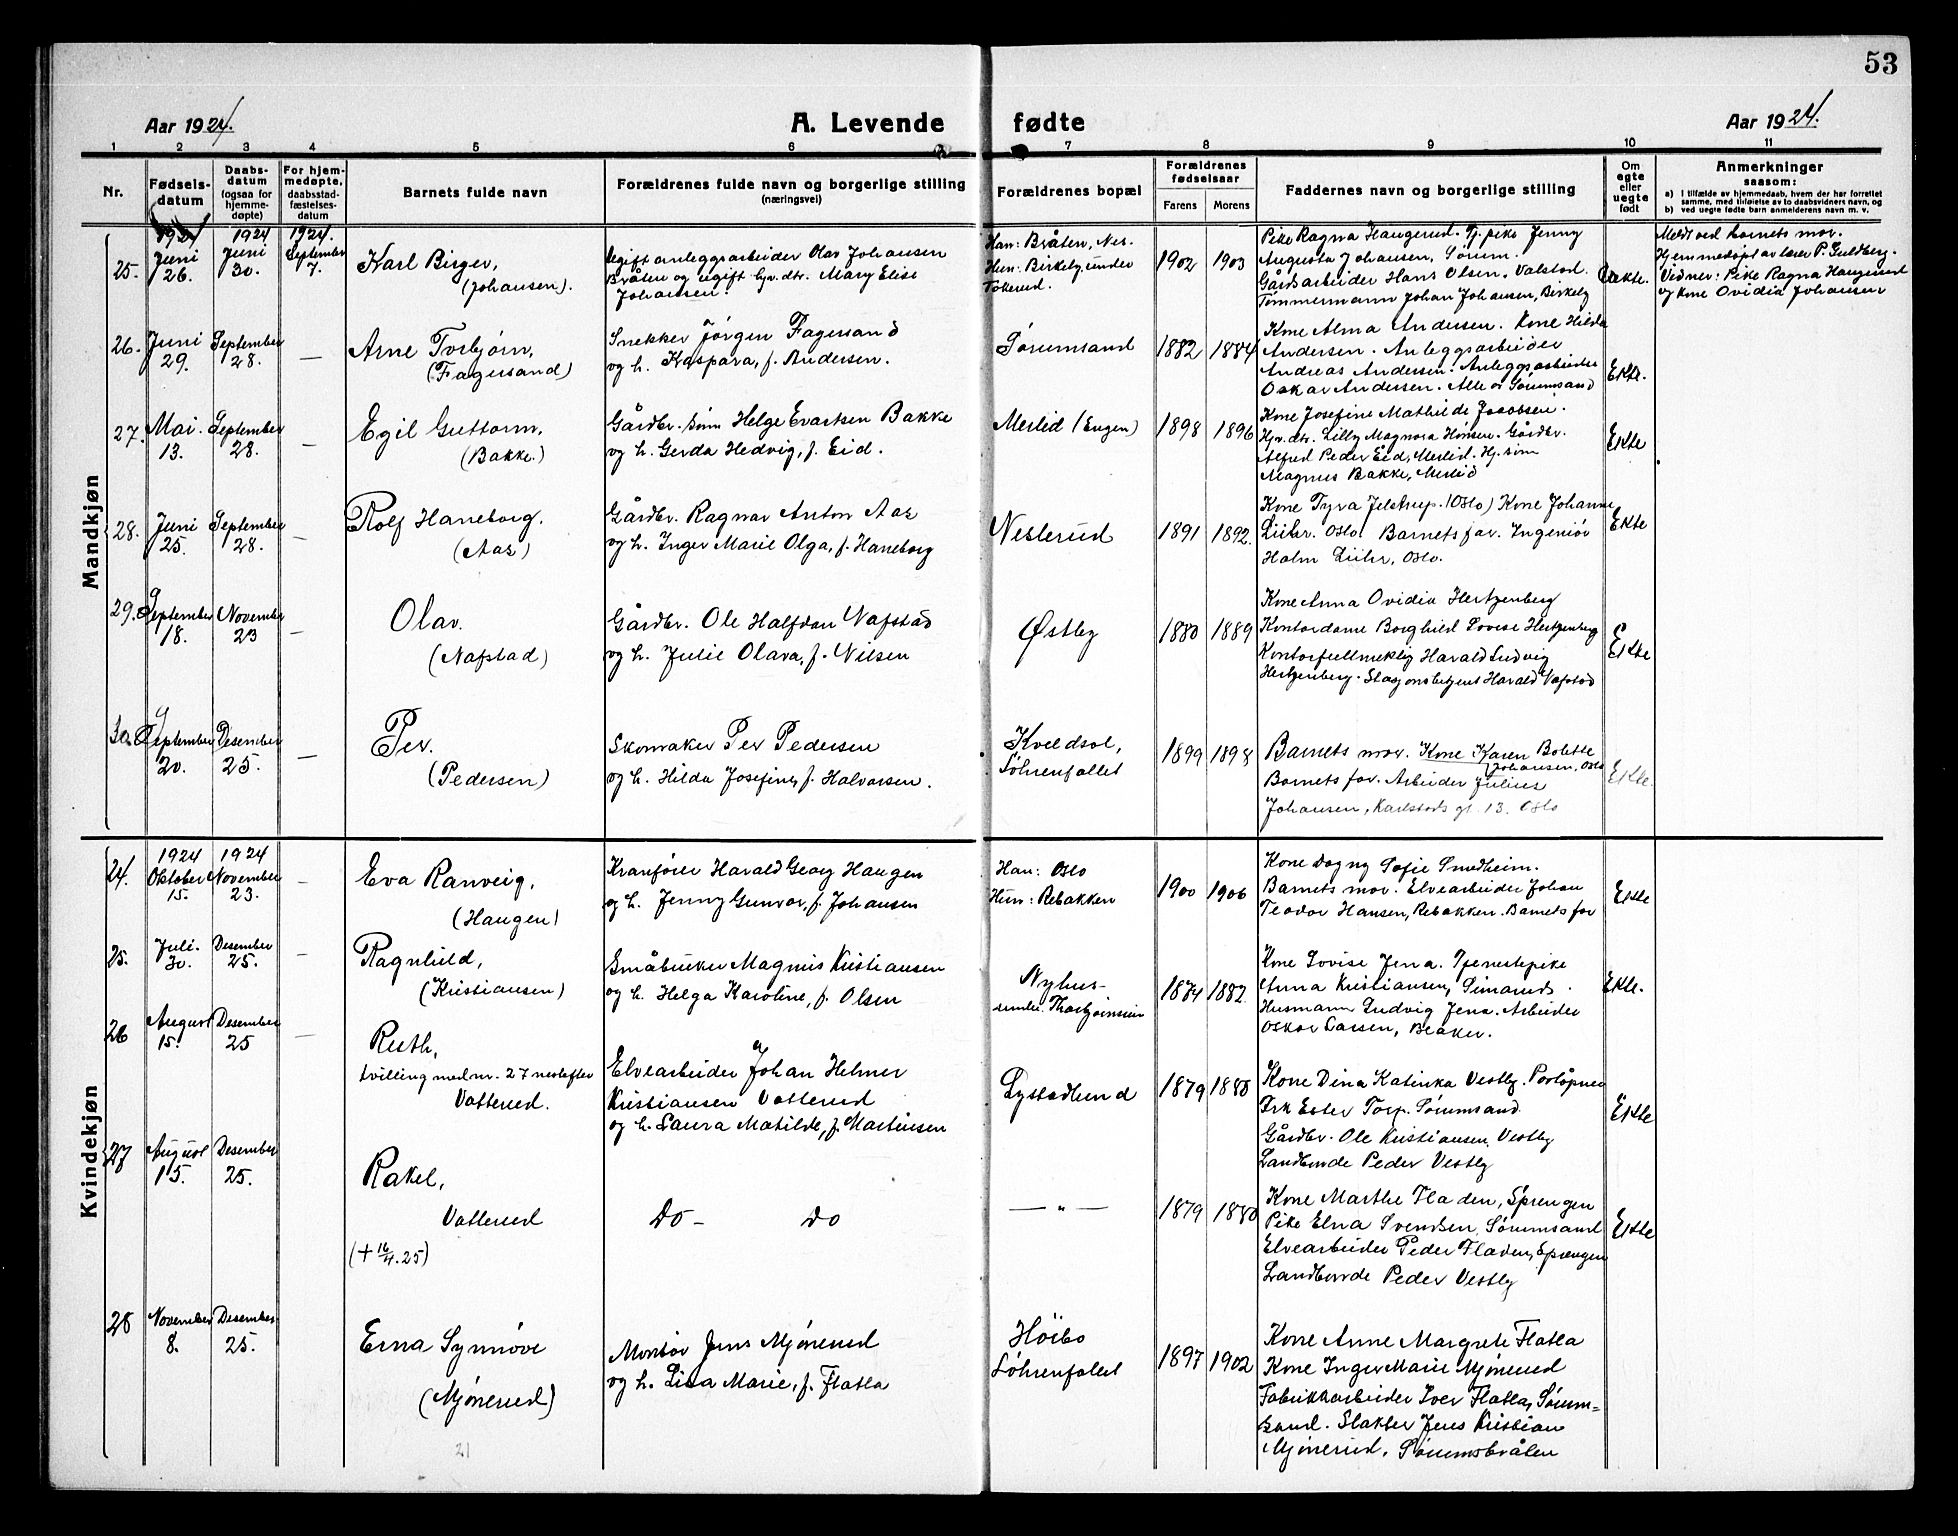 53
Aar 1924.
A. Levende fødte
Aar 1924.
1 2 3 4 5 6 7 8 9 10 11
Nr.
Fødsels-
datum
Daabs-
datum
(ogsaa for
hjemme-
døpte)
For hjem-
medøpte,
daabsstad-
fæstelses-
datum
Barnets fulde navn
Forældrenes fulde navn og borgerlige stilling
(næringsvei)
Forældrenes bopæl
Forældrenes
fødselsaar
Farens Morens
Faddernes navn og borgerlige stilling
Om
egte
eller
uegte
født
Anmerkninger
saasom:
a) I tilfælde av hjemmedaab, hvem der har forrettet
samme, med tilføielse av to daabsvidners navn, og
b) ved uegte fødte barn anmelderens navn m. v.
Mandkjøn
25.
1924
Juni
26.
1924
Juni
30.
1924.
September
7.
Karl Birger,
(Johansen).
Ugift anleggsarbeider Olav Johansen
Bråten og ugift hjv. dtr. Mary Elise
Johansen.
Han: Bråten, Nes.
Hun: Birkely, under
Tokerud.
1902 1903
Pike Ragna Haugerud. Tj. pike Jenny
Augusta Johansen, Sørum.
Gårdsarbeider Hans Olsen, Valstad.
Tømmermann Johan Johansen, Birkely
Uekte.
Meldt ved barnets mor.
Hjemmedøpt av lærer P. Guldberg.
Vidner: Pike Ragna Haugerud
og kone Ovidia Johansen
26.
Juni
29.
September
28.
—
Arne Torbjørn,
(Fagersand)
Snekker Jørgen Fagersand
og h. Kaspara, f. Andersen.
Sørumsand
1882 1884
Kone Alma Andersen. Kone Hilda
Andersen. Anleggsarbeider
Andreas Andersen. Anleggsarbeider
Oskar Andersen. Alle av Sørumsand
Ekte.
27.
Mai.
13.
September
28.
—
Egil Guttorm,
(Bakke.)
Gårdbr. sønn Helge Evartsen Bakke
og h. Gerda Hedvig, f. Eid.
Merlid (Engen)
1898 1896
Kone Josefine Mathilde Jacobsen.
Hjv. dtr. Lilly Magnora Hansen. Gårdbr.
Alfred Peder Eid, Merlid. Hj. sønn
Magnus Bakke, Merlid
Ekte
28.
Juni
25.
September
28.
—
Rolf Haneborg.
(Aas)
Gårdbr. Ragnar Anton Aas
og h. Inger Marie Olga, f. Haneborg
Nesterud
1891 1892.
Kone Tyra Jelstrup. (Oslo) Kone Johanne
Lüher. Oslo. Barnets far. Ingeniør
Holm Lüher, Oslo.
Ekte
29.
September
18.
November
23
—
Olav.
(Nafstad)
Gårdbr. Ole Halfdan Nafstad
og h. Julie Olava, f. Nilsen
Østby
1880 1889
Kone Anna Ovidia Hertzenberg
Kontordame Borghild Lovise Hertzenberg
Kontorfullmektig Harald Ludvig
Hertzenberg. Stasjonsbetjent Harald Nafstad
Ekte
30.
September
20.
Desember
25.
—
Per.
(Pedersen)
Skomaker Per Pedersen
og h. Hilda Josefine, f. Halvorsen.
Kveldsol,
Søhrenfallet
1899 1898
Barnets mor. Kone Karen Bolette
Johansen, Oslo
Barnets far. Arbeider Julius
Johansen, Karlstads gt. 13. Oslo
Ekte.
Kvindekjøn
24.
1924
Oktober
15.
1924
November
23.
—
Eva Ranveig,
(Haugen)
Kranfører Harald Georg Haugen
og h. Jenny Gunvor, f. Johansen
Han: Oslo
Hun: Rebakken
1900 1906
Kone Dagny Sofie Smedheim.
Barnets mor. Elvearbeider Johan
Teodor Hansen, Rebakken. Barnets far
Ekte
25.
Juli.
30.
Desember
25.
—
Ragnhild,
(Kristiansen)
Småbruker Magnus Kristiansen
og h. Helga Karoline, f. Olsen
Nyhus-
under Thorbjørnsrud
1874 1882.
Kone Lovise Jena. Tjenestepike
Anna Kristiansen,
Husmann Ludvig Jena. Arbeider
Oskar Larsen,
Ekte.
26
August
15.
Desember
25
—
Ruth,
tvilling med nr. 27 nestefter
Vatterud.
Elvearbeider Johan Helmer
Kristiansen Vatterud
og h. Laura Matilde, f. Martinsen
Lystadlund
1879 1880
Kone Dina Katinka Vestby.
Frk Ester Torp. Sørumsand.
Gårdbr. Ole Kristiansen, Vestby
Landhandle Peder Vestby
Ekte
27
August
15.
Desember
25.
Rakel,
Vatterud
(+ 16/4.25)
Do — Do
— „ —
1879 1880
Kone Marthe Fladen, Sprengen
Pike Elna Svendsen, Sørumsand
Elvearbeider Peder Fladen, Sprengen
Landhandle Peder Vestby
Ekte
28
November
8.
Desember
25.
Erna Synnøve
(Mjønerud)
Montør Jens Mjønerud
og h. Lisa Marie, f. Flatla
Høibo
Søhrenfallet
1897 1902
Kone Anne Margrete Flatla
Kone Inger Marie Mjønerud
Fabrikkarbeider Iver Flatla, Sørum-
sand. Slakter Jens Kristian
Mjønerud, Sørumsbråten
21